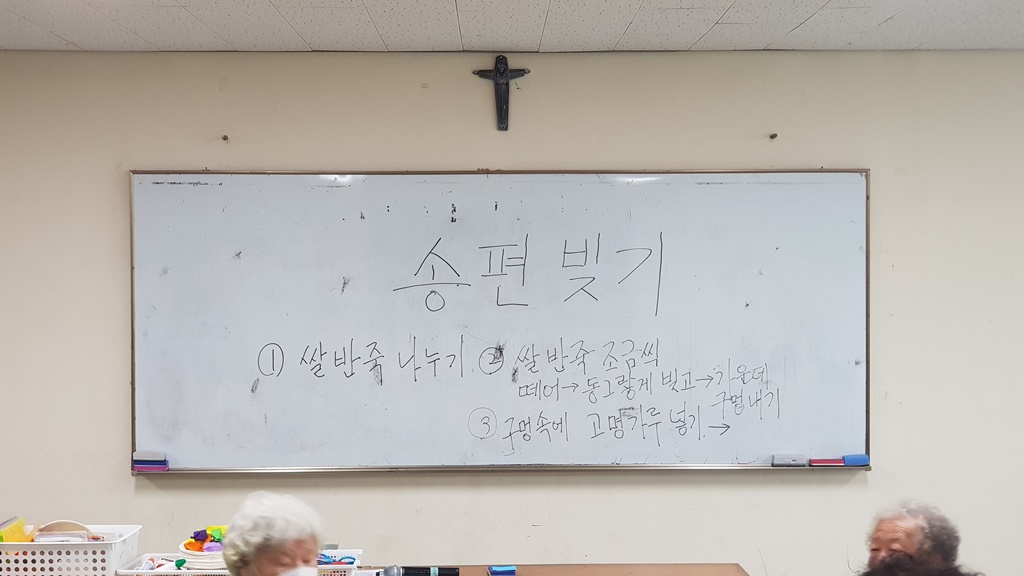 송편 빚기
① 쌀반죽 나누기 ② 쌀반죽 조금씩
떼어→동그랗게 빚고→가운데
구멍내기
③ 구멍속에 고명가루 넣기→